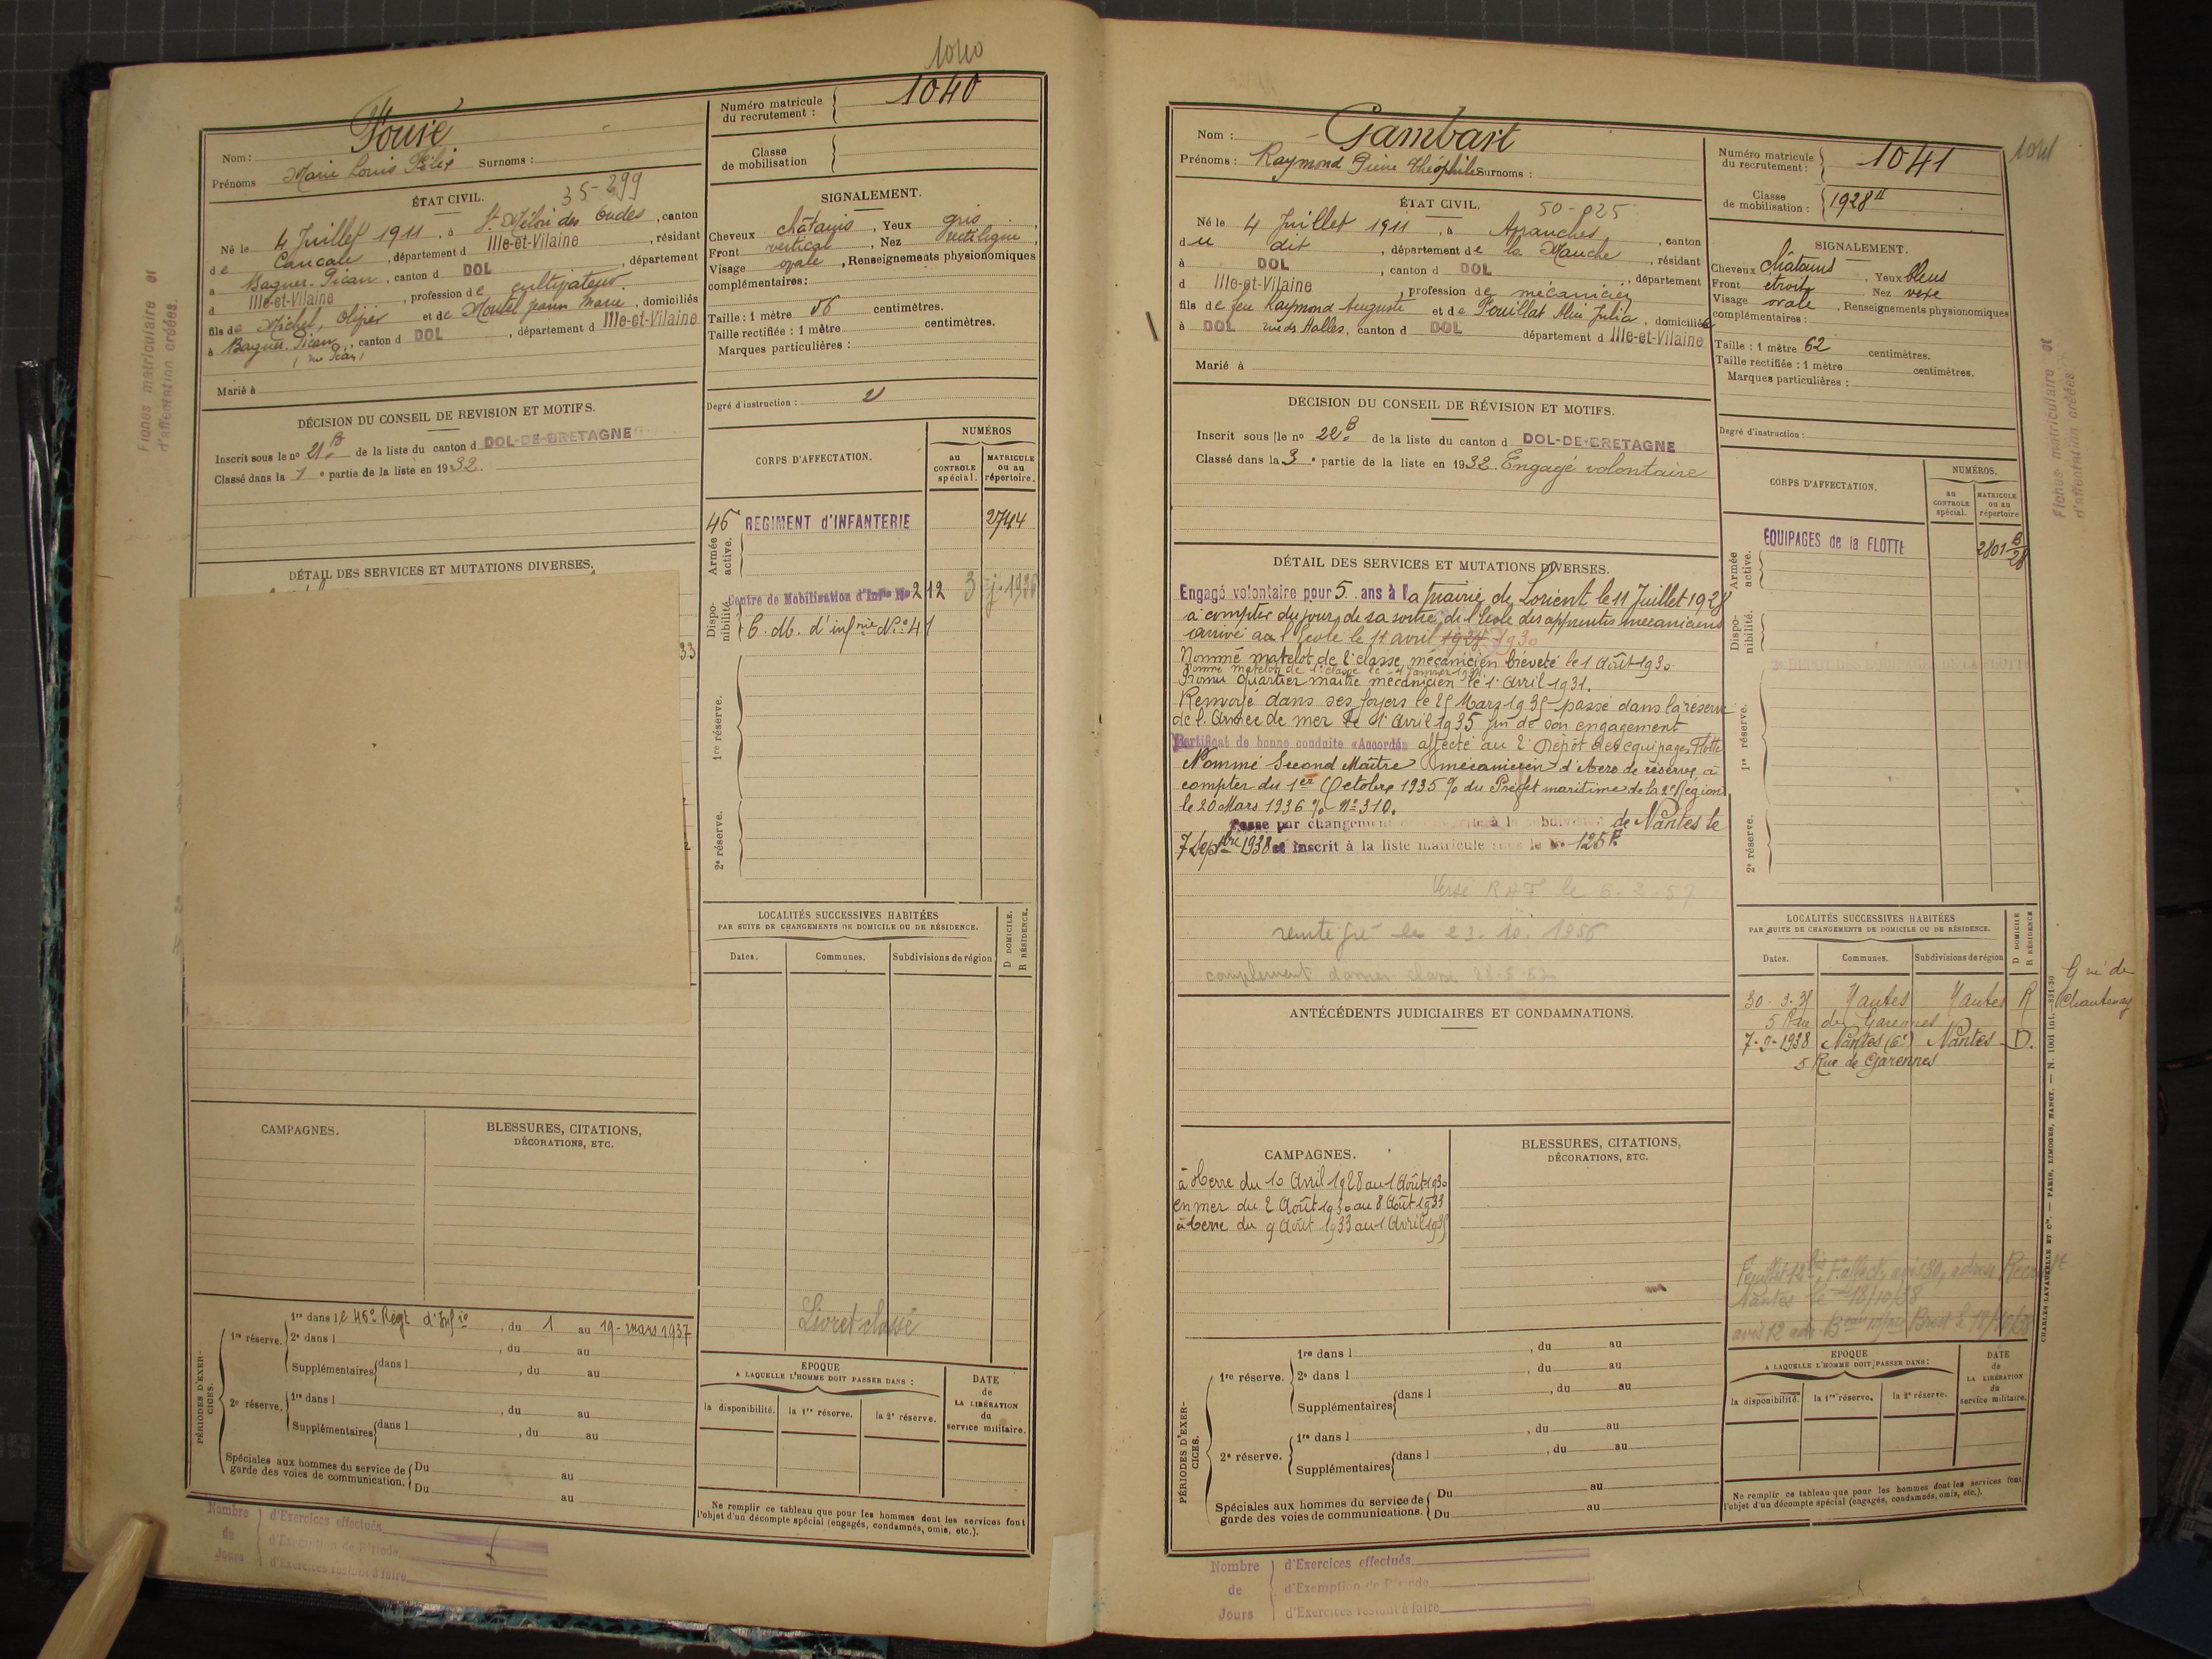 1040
Numéro matricule du recrutement : 1040
Classe de mobilisation
Nom :
Prénoms Marie Louis Félix Surnoms :
ÉTAT CIVIL. 35-299
Né le 4 Juillet 1911, à St Méloir des Ondes, canton
de Cancale, département d Ille-et-Vilaine, résidant
à Baguer-Pican, canton d DOL, département
d Ille-et-Vilaine, profession de cultivateur
fils de Michel, Olivier et de Jeanne Marie, domiciliés
à Baguer-Pican, canton d DOL, département d Ille-et-Vilaine
Marié à
SIGNALEMENT.
Cheveux châtains, Yeux gris
Front vertical, Nez rectiligne,
Visage ovale, Renseignements physionomiques
complémentaires :
Taille : 1 mètre 56 centimètres.
Taille rectifiée : 1 mètre centimètres.
Marques particulières :
Degré d'instruction : 2
DÉCISION DU CONSEIL DE REVISION ET MOTIFS.
Inscrit sous le no 21 B de la liste du canton d DOL-DE-BRETAGNE
Classé dans la 1e partie de la liste en 1932.
DÉTAIL DES SERVICES ET MUTATIONS DIVERSES.
33
CORPS D'AFFECTATION.
NUMÉROS
au CONTROLE spécial.
MATRICULE ou au répertoire.
Armée active.
46e REGIMENT d'INFANTERIE 2744
Disponibilité.
Centre de Mobilisation d'Infie No 212
C. M. d'infrie No 41
1re réserve.
2e réserve.
LOCALITÉS SUCCESSIVES HABITÉES
PAR SUITE DE CHANGEMENTS DE DOMICILE OU DE RÉSIDENCE.
Dates. Communes. Subdivisions de région
D DOMICILE. R RÉSIDENCE.
Livret classé
CAMPAGNES.
BLESSURES, CITATIONS,
DÉCORATIONS, ETC.
PÉRIODES D'EXERCICES.
1re réserve.
1re dans le 46e Régt d'Infie, du 1 au 19-mars 1937
2e dans l , du au
Supplémentaires dans l , du au
2e réserve.
1re dans l , du au
Supplémentaires dans l , du au
Spéciales aux hommes du service de garde des voies de communication. Du au
Du au
EPOQUE
A LAQUELLE L'HOMME DOIT PASSER DANS :
la disponibilité. la 1re réserve. la 2e réserve.
DATE de LA LIBÉRATION du service militaire.
Ne remplir ce tableau que pour les hommes dont les services font
l'objet d'un décompte spécial (engagés, condamnés, omis, etc.).
Nombre de Jours
d'Exercices effectués
d'Exemption de Période
d'Exercices restant à faire
Fiches matriculaire et
d'affectation créées.
Nom : Gambart
Prénoms : Raymond Pierre Théophile Surnoms :
Numéro matricule du recrutement : 1041
1041
Classe de mobilisation : 1928
ÉTAT CIVIL.
Né le 4 Juillet 1911, à Avranches, canton
du dit, département de la Manche, résidant
à DOL, canton d DOL, département
d Ille-et-Vilaine, profession de mécanicien
fils de feu Raymond Auguste et de Julia, domiciliés
à DOL rue des Halles, canton d DOL département d Ille-et-Vilaine
Marié à
SIGNALEMENT.
Cheveux châtains, Yeux bleus
Front étroit, Nez vexe
Visage ovale, Renseignements physionomiques
complémentaires :
Taille : 1 mètre 62 centimètres.
Taille rectifiée : 1 mètre centimètres.
Marques particulières :
Degré d'instruction :
DÉCISION DU CONSEIL DE RÉVISION ET MOTIFS.
Inscrit sous le no 22 B de la liste du canton d DOL-DE-BRETAGNE
Classé dans la 3e partie de la liste en 1932. Engagé volontaire
DÉTAIL DES SERVICES ET MUTATIONS DIVERSES.
Engagé volontaire pour 5 ans à la mairie de Lorient le 11 Juillet 1928
à compter du jour de sa sortie de l'Ecole des apprentis mécaniciens
arrivé à l'Ecole le 11 avril 1930
Nommé matelot de 2e classe mécanicien breveté le 1 Août 1930
Nommé matelot de 1e classe le 1 Janvier 1931.
Promu quartier maitre mécanicien le 1 Avril 1931.
Renvoyé dans ses foyers le 25 Mars 1935 passé dans la réserve
de l'Armée de mer le 1 Avril 1935 fin de son engagement
Certificat de bonne conduite "Accordé" affecté au 2e Dépôt des équipages Flotte
Nommé Second Maître mécanicien d'Aéro de réserve, à
compter du 1er Octobre 1935 % du Préfet maritime de la 2e Région
le 20 Mars 1936 % No 310.
Passe par changement à la subdivision de Nantes le
7 Septbre 1938 et inscrit à la liste matricule sous le No 125
Versé RAF le 6.2.57
réintégré le 23.10.1956
CORPS D'AFFECTATION.
NUMÉROS.
au CONTROLE spécial.
MATRICULE ou au répertoire
Armée active.
EQUIPAGES de la FLOTTE 2801 B/28
Disponibilité.
1re réserve.
2e DEPOT DES EQUIPAGES DE LA FLOTTE
2e réserve.
LOCALITÉS SUCCESSIVES HABITÉES
PAR SUITE DE CHANGEMENTS DE DOMICILE OU DE RÉSIDENCE.
Dates. Communes. Subdivisions de région
D DOMICILE R RÉSIDENCE
30-3-35 Nantes Nantes R
5 Rue des Garennes
7-9-1938 Nantes (6e) Nantes D.
5 Rue de Garennes
Chantenay
Nantes le 18/10/38
ANTÉCÉDENTS JUDICIAIRES ET CONDAMNATIONS.
CAMPAGNES.
à terre du 10 Avril 1928 au 1 Août 1930
en mer du 2 Août 1930 au 8 Août 1933
à terre du 9 Août 1933 au 1 Avril 1935
BLESSURES, CITATIONS,
DÉCORATIONS, ETC.
PÉRIODES D'EXERCICES.
1re réserve.
1re dans l , du au
2e dans l , du au
Supplémentaires dans l , du au
2e réserve.
1re dans l , du au
Supplémentaires dans l , du au
Spéciales aux hommes du service de garde des voies de communications. Du au
Du au
EPOQUE
A LAQUELLE L'HOMME DOIT PASSER DANS :
la disponibilité. la 1re réserve. la 2e réserve.
DATE de LA LIBÉRATION du service militaire.
Ne remplir ce tableau que pour les hommes dont les services font
l'objet d'un décompte spécial (engagés, condamnés, omis, etc.).
CHARLES-LAVAUZELLE ET Cie. — PARIS, LIMOGES, NANCY. — N. 1001 int.—831-30
Nombre de Jours
d'Exercices effectués
d'Exemption de Période
d'Exercices restant à faire
Fiches matriculaire et
d'affectation créées